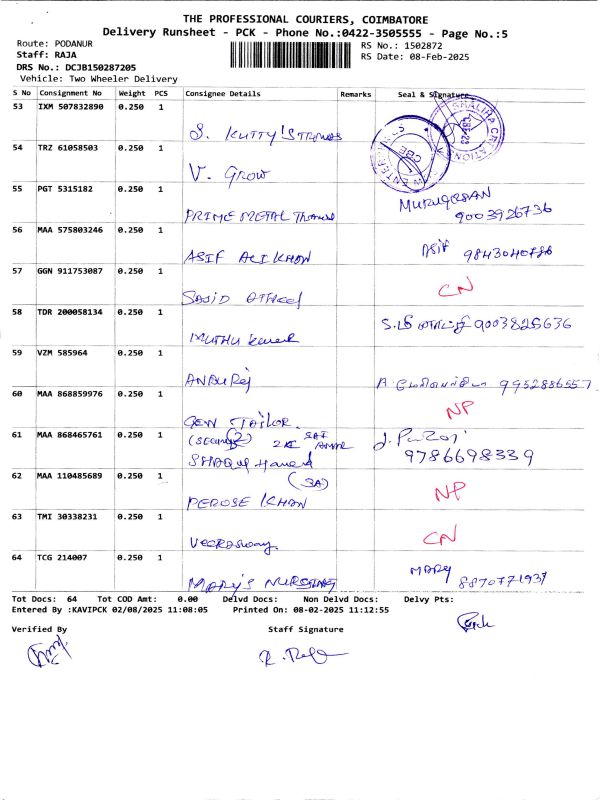 THE PROFESSIONAL COURIERS, COIMBATORE
Delivery Runsheet - PCK - Phone No.:0422-3505555 - Page No.:5
Route: PODANUR
RS No.: 1502872
Staff: RAJA
RS Date: 08-Feb-2025
DRS No.: DCJB150287205
Vehicle: Two Wheeler Delivery
S No Consignment No Weight PCS Consignee Details Remarks Seal & Signature
53 IXM 507832890 0.250 1
S. KUTTY
54 TRZ 61058503 0.250 1
V. Grow
55 PGT 5315182 0.250 1
PRIME METAL MURUGESAN
9003926736
56 MAA 575803246 0.250 1
ASIF ALI KHAN ASIF 9843040786
57 GGN 911753087 0.250 1
SAJID CN
58 TDR 200058134 0.250 1
MUTHU 9003825636
59 VZM 585964 0.250 1
ANBURAJ 9952886557
60 MAA 868859976 0.250 1
GEN TAILOR NP
61 MAA 868465761 0.250 1
9786698339
62 MAA 110485689 0.250 1
(3A)
PEROSE KHAN NP
63 TMI 30338231 0.250 1
Veeraswamy CN
64 TCG 214007 0.250 1
MARY'S NURSING MARY
8870771937
Tot Docs: 64 Tot COD Amt: 0.00 Delvd Docs: Non Delvd Docs: Delvy Pts:
Entered By :KAVIPCK 02/08/2025 11:08:05 Printed On: 08-02-2025 11:12:55
Verified By Staff Signature